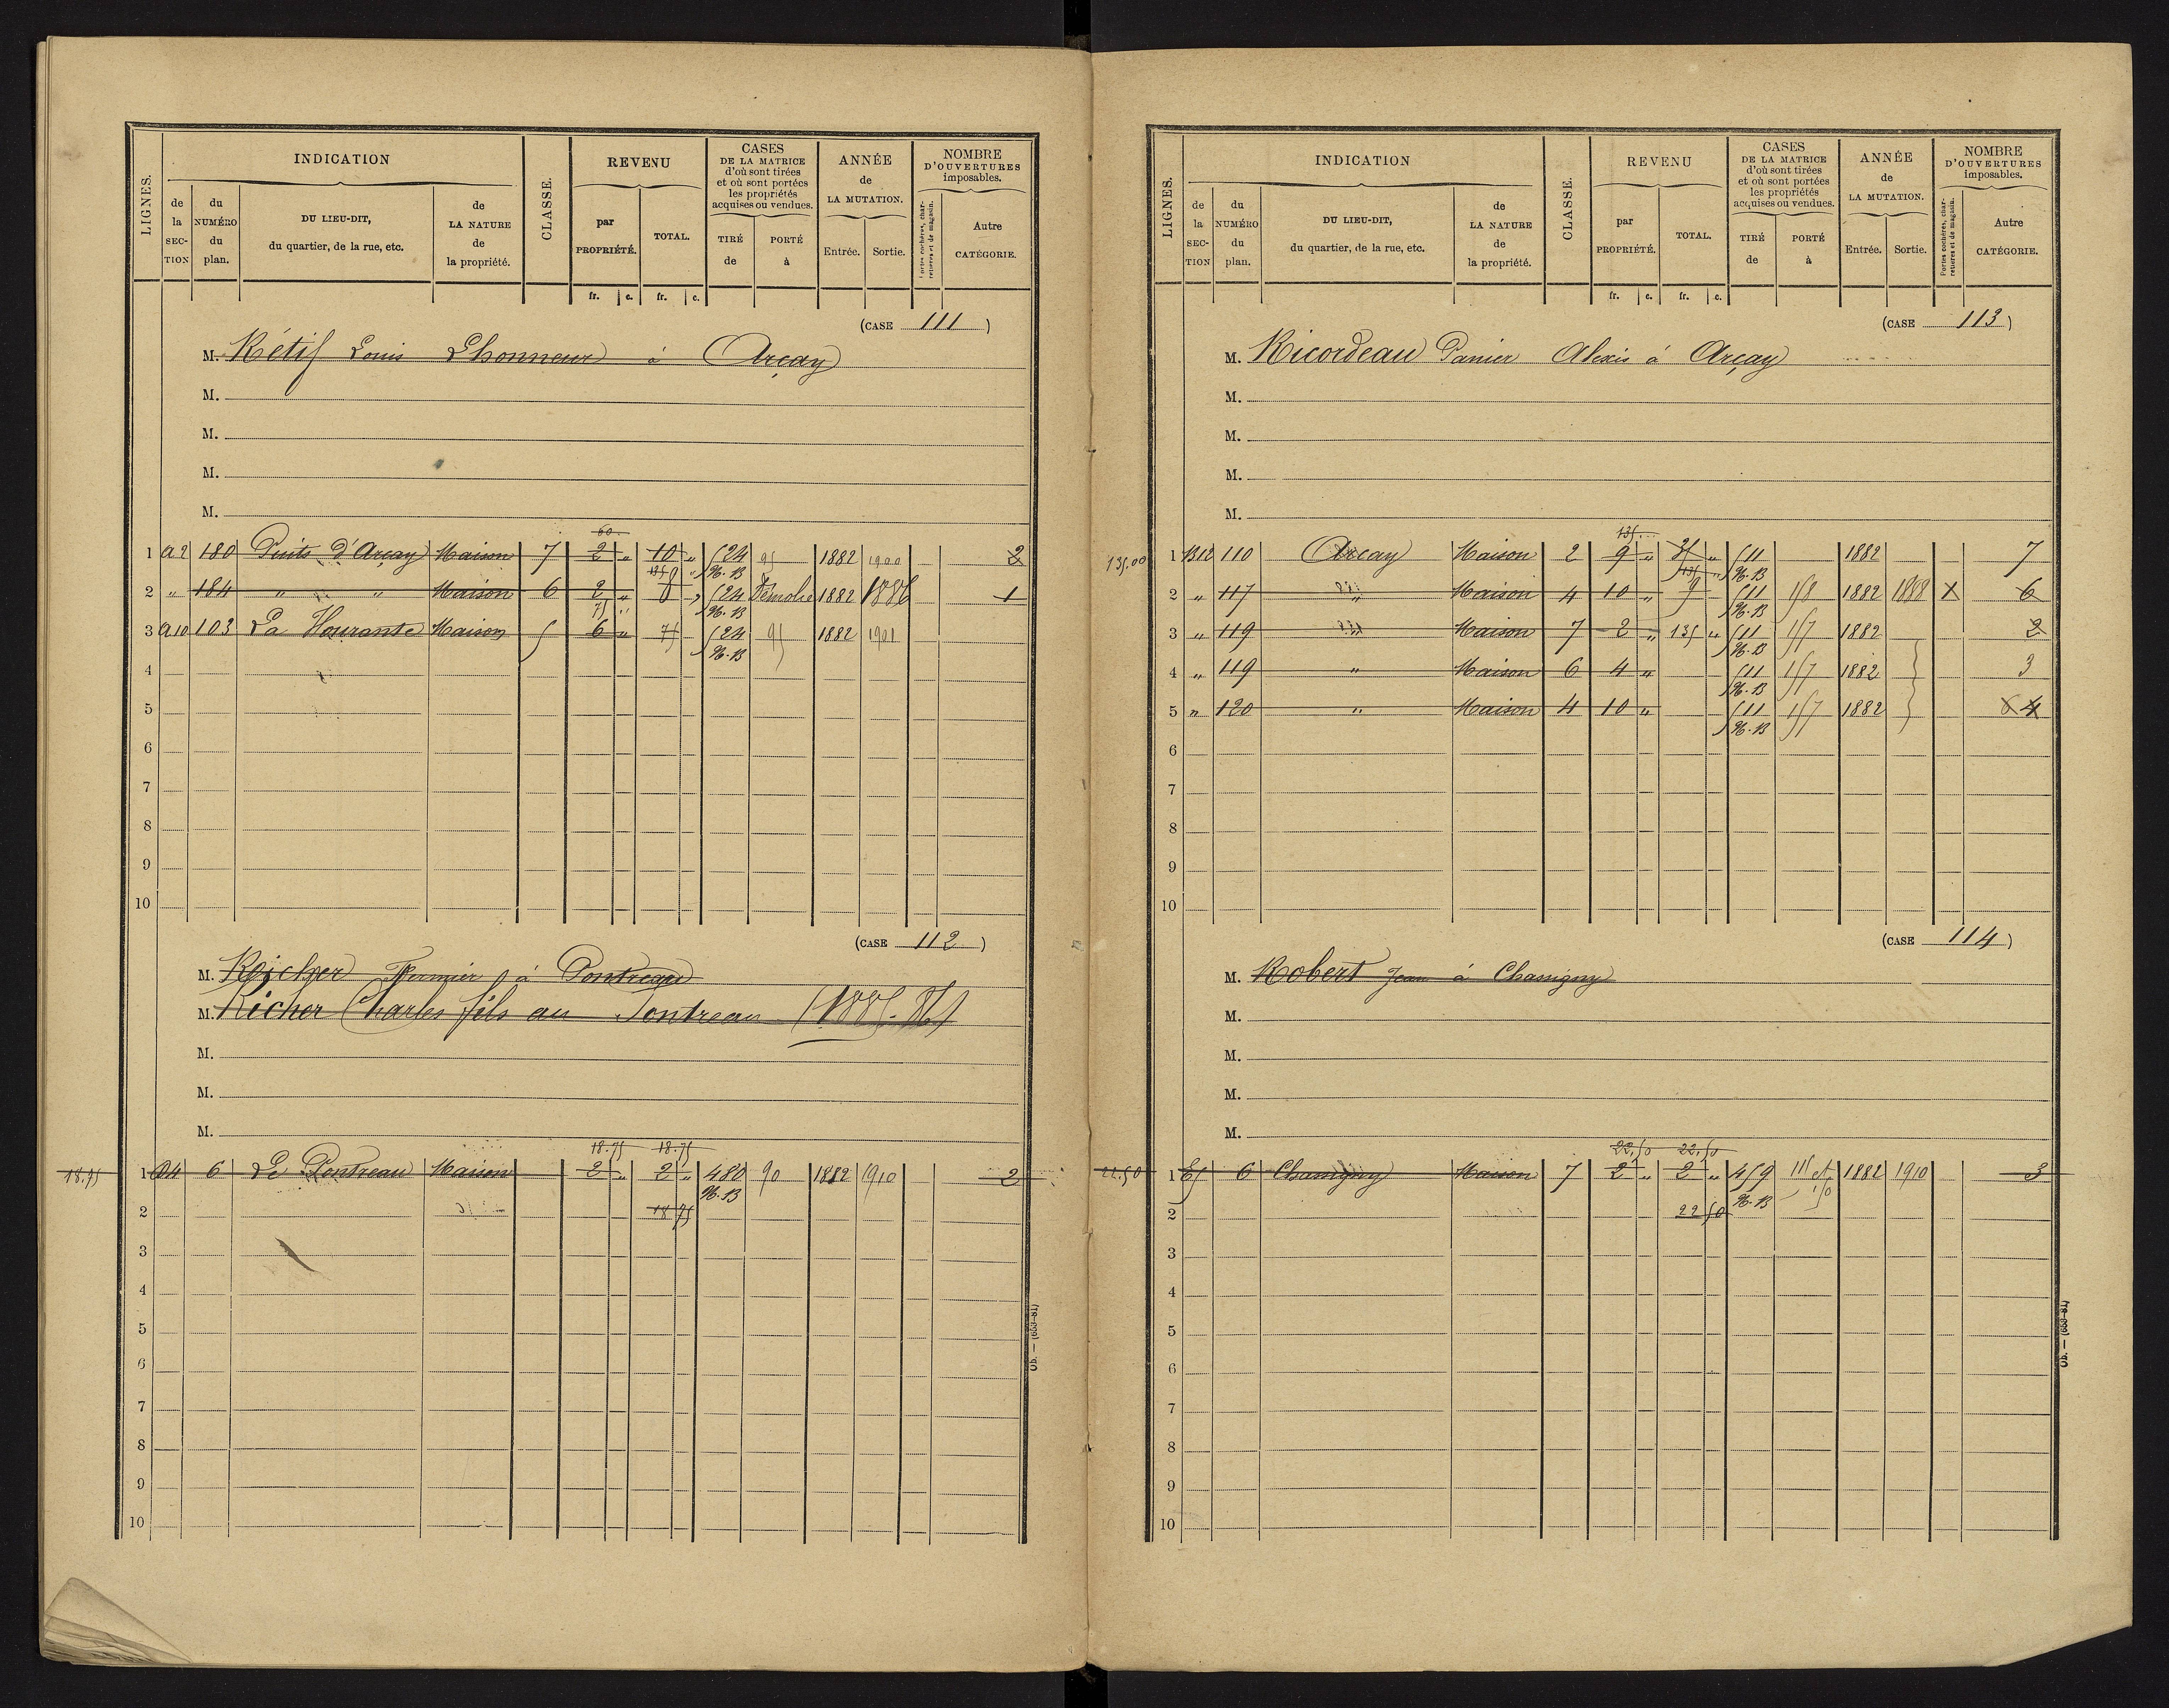 LIGNES.
INDICATION
de la SECTION
du NUMÉRO du plan.
DU LIEU-DIT, du quartier, de la rue, etc.
de LA NATURE de la propriété.
CLASSE.
REVENU
par PROPRIÉTÉ.
TOTAL.
fr. c. fr. c.
CASES DE LA MATRICE d'où sont tirées et où sont portées les propriétés acquises ou vendues.
TIRÉ de
PORTÉ à
ANNÉE de LA MUTATION.
Entrée. Sortie.
NOMBRE D'OUVERTURES imposables.
Portes cochères, charretières et de magasin.
Autre CATÉGORIE.
(CASE 111)
M. Rétif Louis Lhonneur à Arçay
M.
M.
M.
M.
60
1 A2 180 Puits d'Arçay Maison 7 2 " 10 " 524 95 1882 1900 2
N.B
2 " 184 " " Maison 6 2 " 524 Démolie 1882 1886 1
75 N.B
3 A10 103 La Hourante Maison 5 6 " 75 524 95 1882 1901
N.B
4
5
6
7
8
9
10
(CASE 112)
M. Richer Fermier à Pontreau
M. Richer Charles fils au Pontreau (1885-86)
M.
M.
M.
18.75 18.75
18.75 1 D4 6 Le Pontreau Maison 2 " 2 " 480 90 1882 1910 2
N.B
2 18 75
3
4
5
6
7
8
9
10
Ob. — (653-81)
LIGNES.
INDICATION
de la SECTION
du NUMÉRO du plan.
DU LIEU-DIT, du quartier, de la rue, etc.
de LA NATURE de la propriété.
CLASSE.
REVENU
par PROPRIÉTÉ.
TOTAL.
fr. c. fr. c.
CASES DE LA MATRICE d'où sont tirées et où sont portées les propriétés acquises ou vendues.
TIRÉ de
PORTÉ à
ANNÉE de LA MUTATION.
Entrée. Sortie.
NOMBRE D'OUVERTURES imposables.
Portes cochères, charretières et de magasin.
Autre CATÉGORIE.
(CASE 113)
M. Ricordeau Panier Alexis à Arçay
M.
M.
M.
M.
135
135.00 1 B12 110 Arcay Maison 2 9 " 35 " 511 1882 7
135 N.B
2 " 117 " Maison 4 10 " 9 511 158 1882 1888 X 6
N.B
3 " 119 " Maison 7 2 " 135 " 511 157 1882 2
N.B
4 " 119 " Maison 6 4 " 511 157 1882 3
N.B
5 " 120 " Maison 4 10 " 511 157 1882 6 4
N.B
6
7
8
9
10
(CASE 114)
M. Robert Jean à Chassigny
M.
M.
M.
M.
22,50 22,50
22.50 1 E5 6 Chassigny Maison 7 2 " 2 " 459 115 et 1882 1910 3
N.B 150
2 22 50
3
4
5
6
7
8
9
10
Ob. — (653-81)